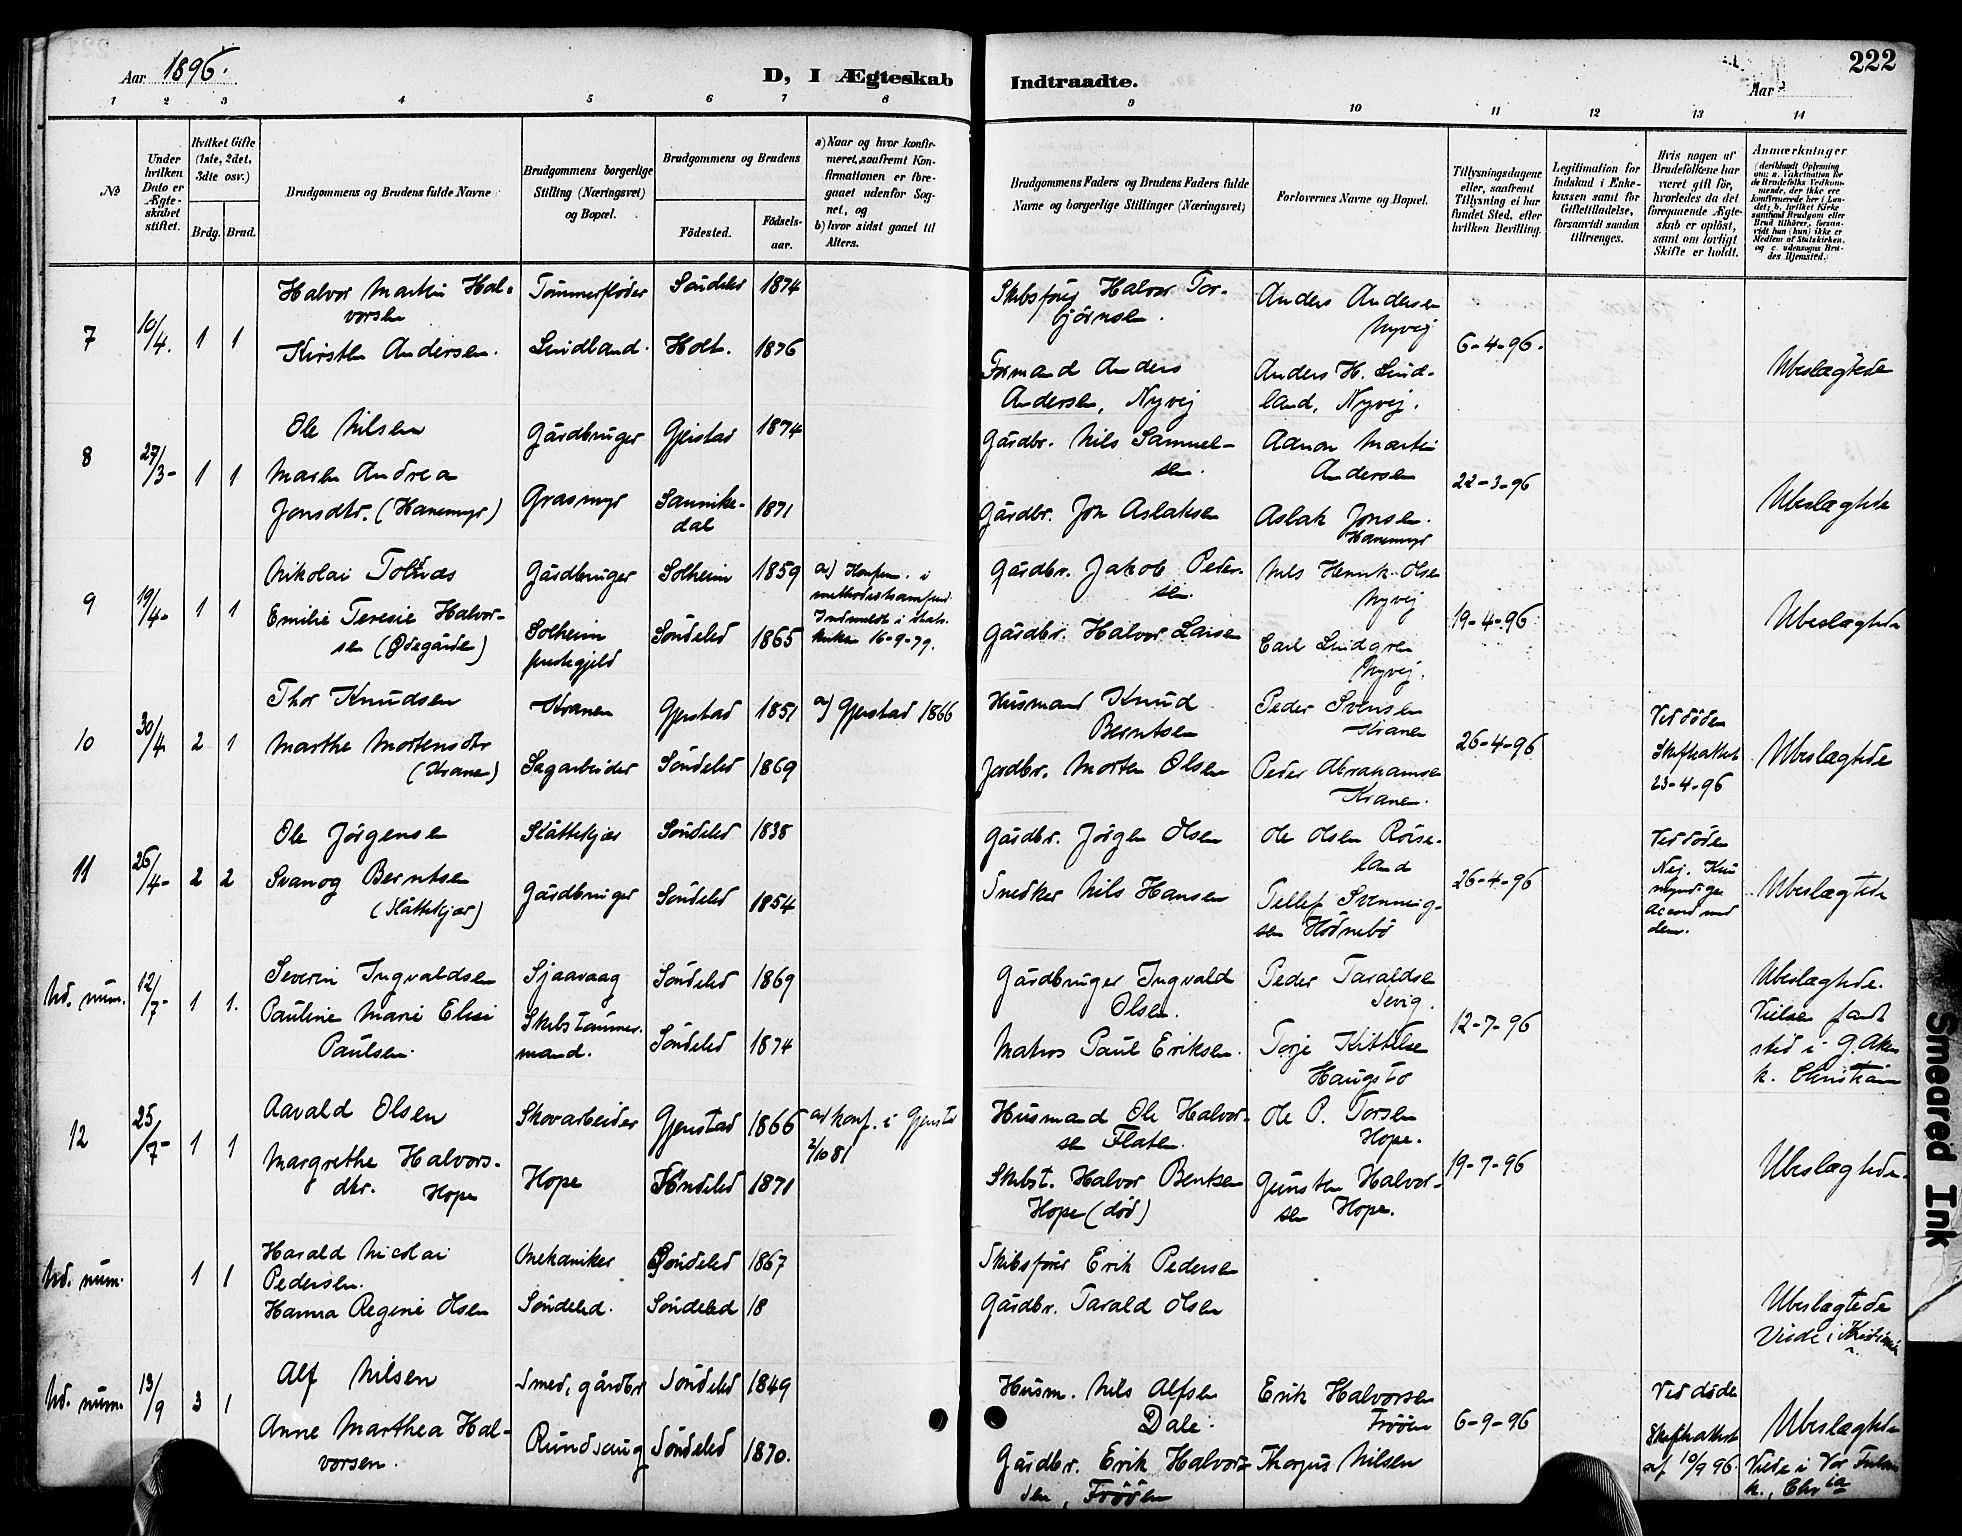 Aar 1896.
D, I Ægteskab Indtraadte.
222
Aar
1 2 3 4 5 6 7 8 9 10 11 12 13 14
№
Under hvilken Dato er Ægteskabet stiftet.
Hvilket Gifte (1ste, 2det, 3die osv.)
Brdg. Brud.
Brudgommens og Brudens fulde Navne
Brudgommens borgerlige Stilling (Næringsvei) og Bopæl.
Brudgommens og Brudens
Fødested.
Fødselsaar.
a) Naar og hvor konfirmeret, saafremt Konfirmationen er foregaaet udenfor Sognet, og
b) hvor sidst gaaet til Alters.
Brudgommens Faders og Brudens Faders fulde Navne og borgerlige Stillinger (Næringsvei)
Forlovernes Navne og Bopæl.
Tillysningsdagene eller, saafremt Tillysning ei har fundet Sted, efter hvilken Bevilling.
Legitimation for Indskud i Enkekassen samt for Giftetilladelse, forsaavidt saadan tiltrænges.
Hvis nogen af Brudefolkene har været gift før, hvorledes da det foregaaende Ægteskab er opløst, samt om lovligt Skifte er holdt.
Anmærkninger
7 10/4. 1 1
Halvor Martin Halvorsen
Kirsten Andersen.
Tømmerfløder
Lindland.
Søndeled 1874
Holt. 1876
Skibsfører Halvor Torbjørnsen.
Formand Anders Andersen, Nyvej
Anders Andersen Nyvej
Anders H. Lindland, Nyvej.
6-4-96.
Ubeslægtede
8 27/3- 1 1
Ole Nilsen
Maren Andrea Jonsdtr. (Hanemyr)
Gårdbruger
Grasmyr
Gjerstad 1874
Sannikedal 1871
Gårdbr. Nils Samuelsen.
Gårdbr. Jon Aslaksen
Martin Andersen
Aslak Jonsen. Hanemyr
22-3-96
Ubeslægtede
9 19/4- 1 1
Nikolai
Emilie Teresie Halvorsen (Ødegården)
Gårdbruger
Solheim prestegjeld
Solheim 1859
Søndeled 1865
a) Konfirm. i
Indmeldt i Stats-kirken 16-9-79.
Gårdbr. Jakob Pedersen.
Gårdbr. Halvor Larsen
Nils Henrik Olsen Nyvej
Carl Lindgren Nyvej.
19-4-96
Ubeslægtede
10 30/4 2 1
Thor Knudsen
Marthe Mortensdtr (Kranen)
Kranen
Sagarbeider
Gjerstad 1851
Søndeled 1869
a) Gjerstad 1866
Husmand Knud Berntsen
Jordbr. Morten Olsen
Peder Svensen Kranen
Peder Abrahamsen Kranen.
26-4-96
Ved døden
Skifteattest
23-4-96
Ubeslægtede
11 26/4- 2 2
Ole Jørgensen
Svanog Berntsen (Slåttekjær)
Slåttekjær
Gårdbruger
Søndeled 1838
Søndeled 1854
Gårdbr. Jørgen Olsen
Snedker Nils Hansen
Ole Olsen Røiseland
Tellef Svenningsen Hødnebø
26-4-96
Ved døden
Nej.
Ubeslægtede
Ud. num. 12/7- 1 1.
Severin Ingvaldsen
Pauline Marie Elisi Paulsen.
Sjaavaag
Skibstømmermand.
Søndeled 1869
Søndeled 1874
Gårdbruger Ingvald Olsen.
Matros Paul Eriksen.
Peder Taraldsen Sevig.
Torje Kittelsen Haugstø
12-7-96
Ubeslægtede.
Vielsen fandt sted i G. Aker k. Christiania
12 25/7- 1 1
Aavald Olsen
Margrethe Halvorsdtr. Hope
Skovarbeider
Hope
Gjerstad 1866
Søndeled 1871
a) Konf. i Gjerstad 2/10 81
Husmand Ole Halvorsen Flaten.
Skibst. Halvor Bentsen Hope (død)
Ole P. Torsen Hope.
Gunsten Halvorsen Hope.
19-7-96
Ubeslægtede.
Ud. num. 1 1
Harald Nicolai Pedersen.
Hanna Regine Olsen
Mekaniker
Søndeled.
Søndeled 1867
Søndeled 18
Skibsfører Erik Pedersen
Gårdbr. Tarald Olsen
Ubeslægtede
Viede i Kristiania
Ud. num. 13/9 3 1
Alf Nilsen
Anne Marthea Halvorsen.
Smed, gårdbr
Rundsaug
Søndeled 1849
Søndeled 1870.
Husm. Nils Alfsen Dale.
Gårdbr. Erik Halvorsen, Frøien
Erik Halvorsen Frøien
Thorgus Nilsen
6-9-96
Ved døden
Skifteattest af 10/9 96.
Ubeslægtede
Viede i Vor Frelsers k., Chria
Smeared Ink